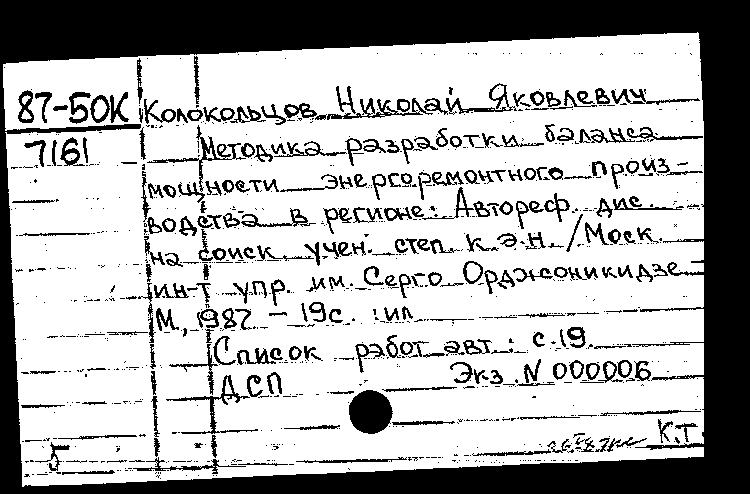 87-50К Колокольцов Николай Яковлевич
7161 Методика разработки баланса
мощности энергоремонтного произ-
водства в регионе: Автореф. дис.
на соиск. учен. степ. к.э.н. / Моск.
ин-т упр. им. Серго Орджоникидзе -
М., 1987 - 19с. : ил
Список работ авт.: с.19.
ДСП Экз. N 000006
К.Т.
5